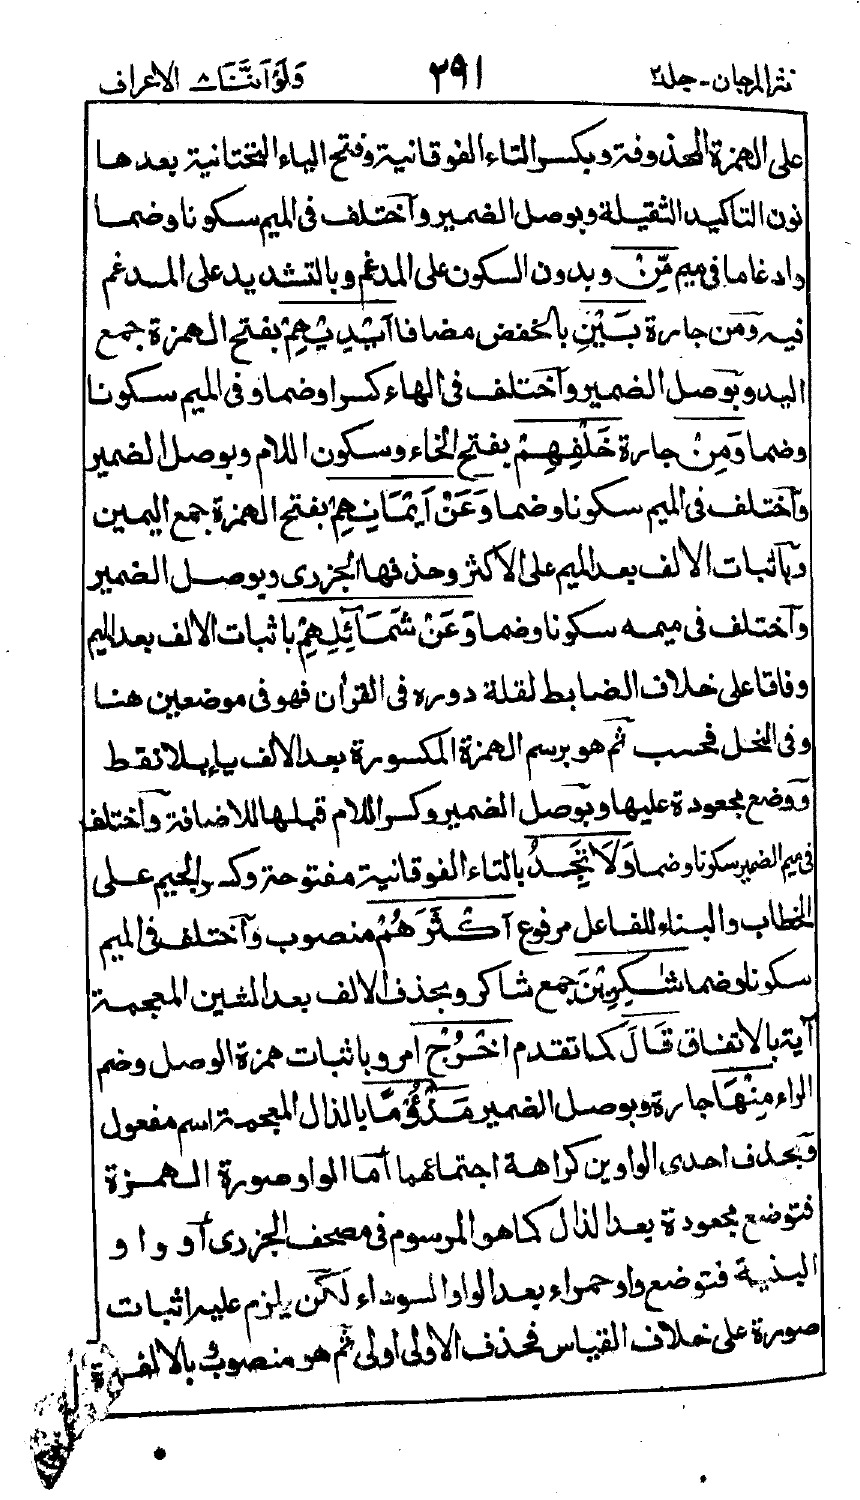 نثر المرجان - جلد ٢ ٢٩١ ولو اننا ٨ الاعراف
على الهمزة المحذوفة وبكسر التاء الفوقانية وفتح الياء التحتانية بعدها
نون التاكيد الثقيلة وبوصل الضمير وآختلف فى الميم سكونا وضما
وادغاما فى ميم مِّنْ وبدون السكون على المدغم وبالتشديد على المدغم
فيه وَمن جارة بَيْنِ بالخفض مضافا آيْدِيْهِمْ بفتح الهمزة جمع
اليد وبَوصل الضمير وآختلف فى الهاء كسرا وضما وفى الميم سكونا
وضما وَمِنْ جارة خَلْفِهِمْ بفتح الخاء وسكون اللام وبوصل الضمير
وآختلف فى الميم سكونا وضما وَعَنْ آيْمَانِهِمْ بفتح الهمزة جمع اليمين
وبآثبات الالف بعد الميم على الاكثر وحذفها الجزرى وبوصل الضمير
وآختلف فى ميمه سكونا وضما وَعَنْ شَمَآئِلِهِمْ باثبات الالف بعد الميم
وفاقا على خلاف الضابط لقلة دوره فى القرأن فهو فى موضعين هنا
وفى النحل فحسب ثم هو برسم الهمزة المكسورة بعد الالف ياء بلا نقط
ووضع مجعودة عليها وبَوصل الضمير وكسر اللام قبلها للاضافة وآختلف
فى ميم الضمير سكونا وضما وَلَا تَجِدُ بالتاء الفوقانية مفتوحة وكسر الجيم على
الخطاب والبناء للفاعل مرفوع آكْثَرَهُمْ منصوب وآختلف فى الميم
سكونا وضما شٰكِرِيْنَ جمع شاكر وبحذف الالف بعد الشين المعجمة
آية بالاتفاق قَالَ كما تقدم اخْرُجْ امر وباثبات همزة الوصل وضم
الراء مِنْهَا جارة وبوصل الضمير مَذْءُوْمًا بالذال المعجمة اسم مفعول
وبَحذف احدى الواوين كراهة اجتماعهما أما الواو صورة الهمزة
فتوضع مجعودة بعد الذال كما هو المرسوم فى مصحف الجزرى أو واو
البنية فتوضع واو حمراء بعد الواو السوداء لكن يلزم عليه اثبات
صورة على خلاف القياس فحذف الاولى اولى ثم هو منصوب بالالف